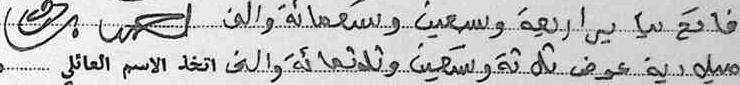 فاتح يناير اربعة وسبعين وتسعمائة والف
ميلادية عوض ثلاثة وستين وثلاثمائة والف اتخذ الاسم العائلي